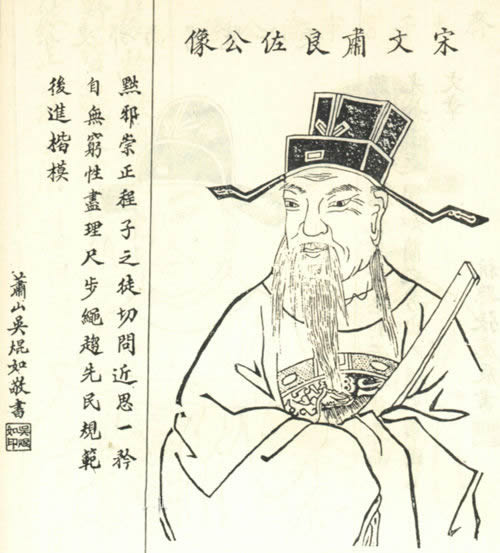 宋文肅良佐公像
黜邪崇正程子之徒切問近思一矜
自無窮性盡理尺步繩趨先民規範
後進楷模
蕭山吳焜如敬書
吳焜
如印